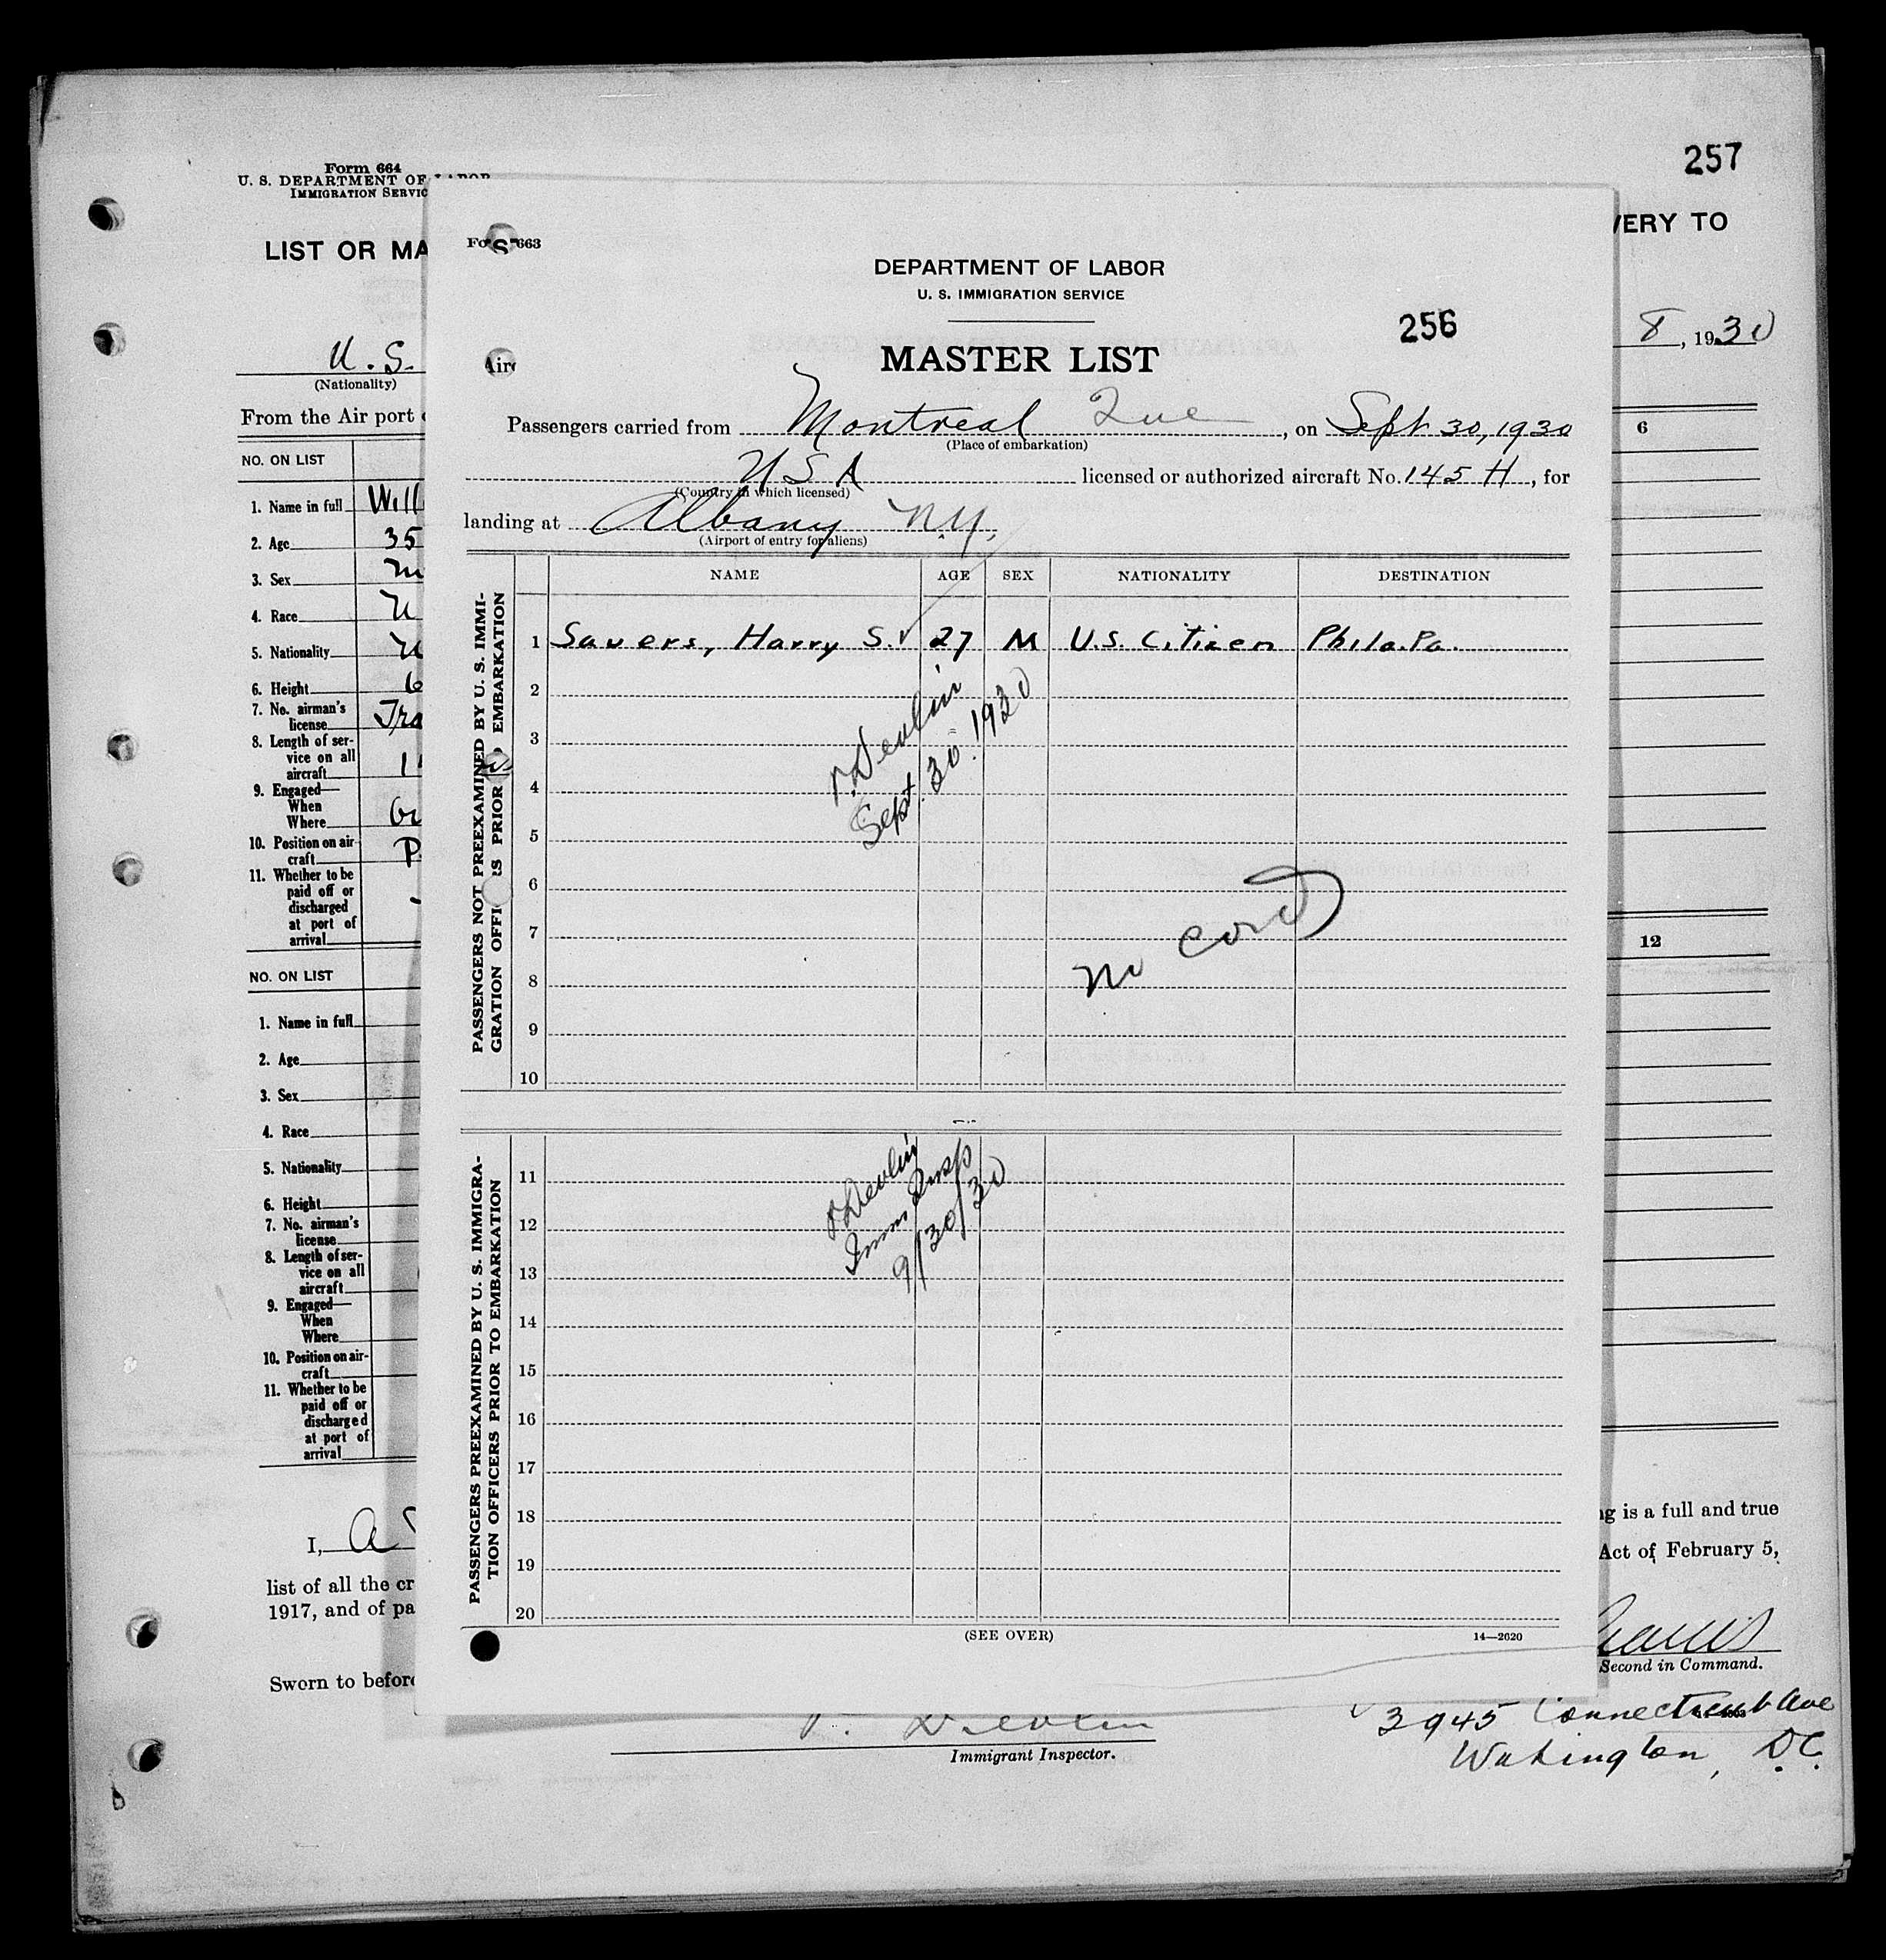 257
Form 664
U. S. DEPARTMENT OF LABOR
IMMIGRATION SERVIC
LIST OR MA
VERY TO
U.S.
(Nationality)
8, 1930
From the Air port
NO. ON LIST
6
1. Name in full Will
2. Age 35
3. Sex M
4. Race U
5. Nationality U
6. Height 6
7. No. airman's
license Tra
8. Length of ser-
vice on all
aircraft 11
9. Engaged—
When
Where
10. Position on air
craft P
11. Whether to be
paid off or
discharged
at port of
arrival
NO. ON LIST
12
1. Name in full
2. Age
3. Sex
4. Race
5. Nationality
6. Height
7. No. airman's
license
8. Length of ser-
vice on all
aircraft
9. Engaged—
When
Where
10. Position on air-
craft
11. Whether to be
paid off or
discharged
at port of
arrival
I, a
ng is a full and true
list of all the cr
Act of February 5,
1917, and of pa
Second in Command.
Sworn to before
P. Devlin
Immigrant Inspector.
3945 Connecticut Ave
Wahington, D.C.
663
DEPARTMENT OF LABOR
U. S. IMMIGRATION SERVICE
256
MASTER LIST
Airc
Passengers carried from Montreal Que, on Sept 30, 1930
(Place of embarkation)
USA licensed or authorized aircraft No. 145 H, for
(Country in which licensed)
landing at Albany N.Y.
(Airport of entry for aliens)
NAME AGE SEX NATIONALITY DESTINATION
PASSENGERS NOT PREEXAMINED BY U. S. IMMI-
GRATION OFFI S PRIOR EMBARKATION
1 Savers, Harry S. ✓ 27 M U.S. Citizen Phila. Pa.
2
3
4
5
6
7
8
9
10
P. Devlin
Sept. 30. 1930
no cord
PASSENGERS PREEXAMINED BY U. S. IMMIGRA-
TION OFFICERS PRIOR TO EMBARKATION
11
12
13
14
15
16
17
18
19
20
P Devlin
Imm Insp
9/30/30
(SEE OVER)
14—2620